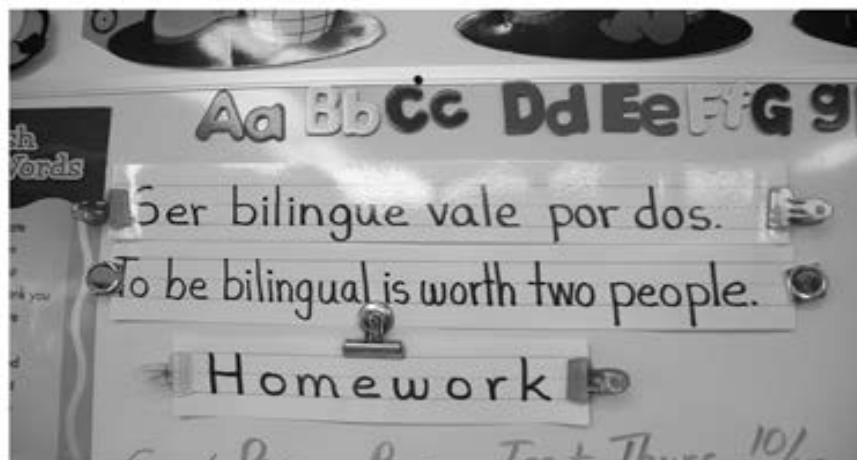 Aa Bb Cc Dd Ee Ff G g
Words
Ser bilingue vale por dos.
To be bilingual is worth two people.
Homework
Test Thurs 10/